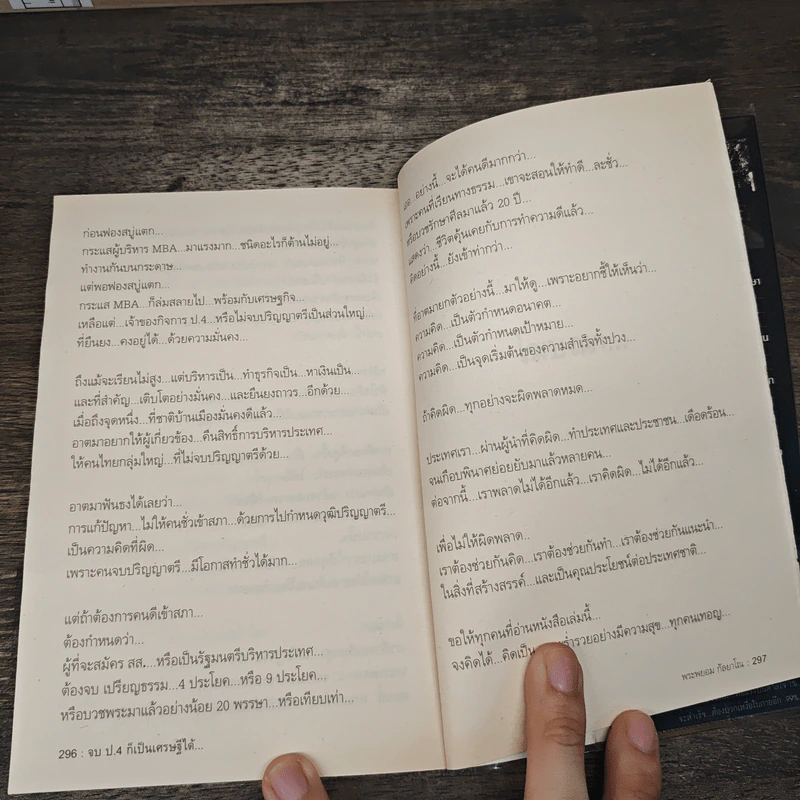 ก่อนฟองสบู่แตก...
กระแสผู้บริหาร MBA...มาแรงมาก...ชนิดอะไรก็ต้านไม่อยู่...
ทำงานกันบนกระดาษ...
แต่พอฟองสบู่แตก...
กระแส MBA...ก็ล่มสลายไป...พร้อมกับเศรษฐกิจ...
เหลือแต่...เจ้าของกิจการ ป.4...หรือไม่จบปริญญาตรีเป็นส่วนใหญ่...
ที่ยืนยง...คงอยู่ได้...ด้วยความมั่นคง...
ถึงแม้จะเรียนไม่สูง...แต่บริหารเป็น...ทำธุรกิจเป็น...หาเงินเป็น...
และที่สำคัญ...เติบโตอย่างมั่นคง...และยืนยงถาวร...อีกด้วย...
เมื่อถึงจุดหนึ่ง...ที่ชาติบ้านเมืองมั่นคงดีแล้ว...
อาตมาอยากให้ผู้เกี่ยวข้อง...คืนสิทธิ์การบริหารประเทศ...
ให้คนไทยกลุ่มใหญ่...ที่ไม่จบปริญญาตรีด้วย...
อาตมาฟันธงได้เลยว่า...
การแก้ปัญหา...ไม่ให้คนชั่วเข้าสภา...ด้วยการไปกำหนดวุฒิปริญญาตรี...
เป็นความคิดที่ผิด...
เพราะคนจบปริญญาตรี...มีโอกาสทำชั่วได้มาก...
แต่ถ้าต้องการคนดีเข้าสภา...
ต้องกำหนดว่า...
ผู้ที่จะสมัคร สส....หรือเป็นรัฐมนตรีบริหารประเทศ...
ต้องจบ เปรียญธรรม...4 ประโยค...หรือ 9 ประโยค...
หรือบวชพระมาแล้วอย่างน้อย 20 พรรษา...หรือเทียบเท่า...
296 : จบ ป.4 ก็เป็นเศรษฐีได้...
...อย่างนี้...จะได้คนดีมากกว่า...
เพราะคนที่เรียนทางธรรม...เขาจะสอนให้ทำดี...ละชั่ว...
หรือบวชรักษาศีลมาแล้ว 20 ปี...
แสดงว่า...ชีวิตคุ้นเคยกับการทำความดีแล้ว...
คิดอย่างนี้...ยังเข้าท่ากว่า...
ที่อาตมายกตัวอย่างนี้...มาให้ดู...เพราะอยากชี้ให้เห็นว่า...
ความคิด...เป็นตัวกำหนดอนาคต...
ความคิด...เป็นตัวกำหนดเป้าหมาย...
ความคิด...เป็นจุดเริ่มต้นของความสำเร็จทั้งปวง...
ถ้าคิดผิด...ทุกอย่างจะผิดพลาดหมด...
ประเทศเรา...ผ่านผู้นำที่คิดผิด...ทำประเทศและประชาชน...เดือดร้อน...
จนเกือบพินาศย่อยยับมาแล้วหลายคน...
ต่อจากนี้...เราพลาดไม่ได้อีกแล้ว...เราคิดผิด...ไม่ได้อีกแล้ว...
เพื่อไม่ให้ผิดพลาด..
เราต้องช่วยกันคิด...เราต้องช่วยกันทำ...เราต้องช่วยกันแนะนำ...
ในสิ่งที่สร้างสรรค์...และเป็นคุณประโยชน์ต่อประเทศชาติ...
ขอให้ทุกคนที่อ่านหนังสือเล่มนี้...
จงคิดได้...คิดเป็น...ร่ำรวยอย่างมีความสุข...ทุกคนเทอญ...
พระพยอม กัลยาโณ : 297